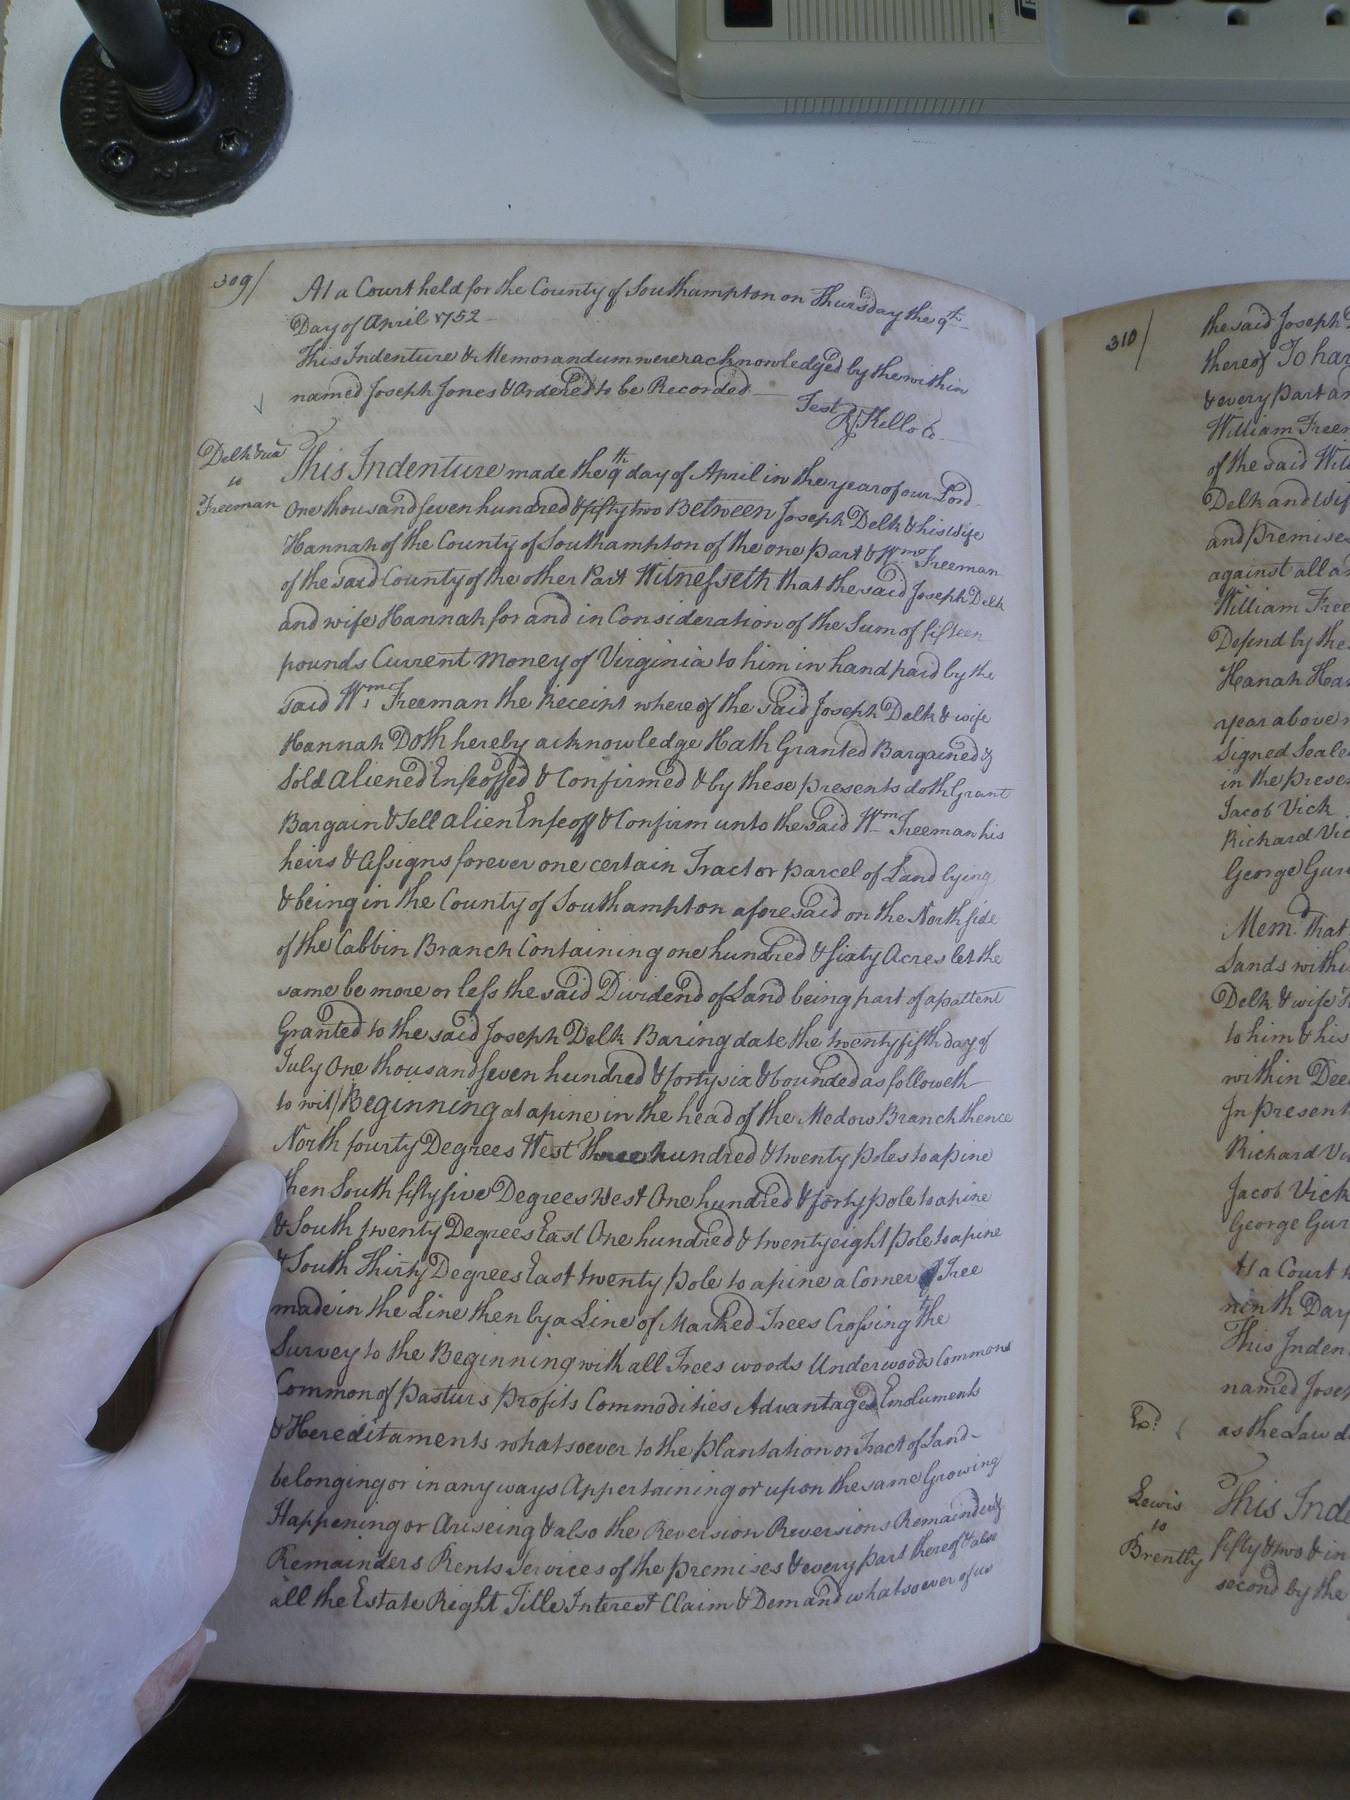 309/
At a Court held for the County of Southampton on Thursday the 9th
Day of April 1752
This Indenture & Memorandum were acknowledged by the within
named Joseph Jones & Ordered to be Recorded
Test
R Kello Cc
Delk & ux
to
Freeman
This Indenture made the 9th day of April in the year of our Lord
One thousand seven hundred & fifty two Between Joseph Delk & his wife
Hannah of the County of Southampton of the one part & Wm. Freeman
of the said County of the other Part Witnesseth that the said Joseph Delk
and wife Hannah for and in Consideration of the Sum of fifteen
pounds Current Money of Virginia to him in hand paid by the
said Wm. Freeman the Receint where of the said Joseph Delk & wife
Hannah Doth hereby acknowledge Hath Granted Bargained &
Sold aliened Enfeoffed & Confirmed & by these presents doth Grant
Bargain & Sell alien Enfeoff & Confirm unto the said Wm. Freeman his
heirs & Assigns forever one certain Tract or parcel of Land lying
& being in the County of Southampton aforesaid on the North side
of the Cabbin Branch Containing one hundred & sixty Acres let the
same be more or less the said Dividend of Land being part of a pattent
Granted to the said Joseph Delk Baring date the twenty fifth day of
July One thousand seven hundred & forty six & bounded as followeth
to wit/ Beginning at a pine in the head of the Medow Branch thence
North fourty Degrees West Three hundred & twenty poles to a pine
then South fifty five Degrees West One hundred & forty pole to a pine
& South twenty Degrees East One hundred & twenty eight pole to a pine
& South Thirty Degrees East twenty pole to a pine a Corner Tree
made in the Line then by a Line of Marked Trees Crossing the
Survey to the Beginning with all Trees woods Underwoods Commons
Common of Pasturs Profits Commodities Advantages Emoluments
& Hereditaments whatsoever to the Plantation or Tract of Land
belonging or in any ways Appertaining or upon the same Growing
Happening or Ariseing & also the Reversion Reversions Remainder &
Remainders Rents Services of the premises & every part thereof & also
all the Estate Right Title Interest Claim & Demand whatsoever of us
310/
the said Joseph
thereof To
& every part
William
of the said
Delk and wife
and premises
against all
William
Defend by the
Hanah
year above
Signed
in the
Jacob Vick
Richard
George
Mem.d That
Lands
Delk & wife
to him & his
within
In
Richard
Jacob Vick
George
At a Court
ninth Day
This
named
Ex.d
as the Law
Lewis
to
Brently
This
fifty & two & in
second by the